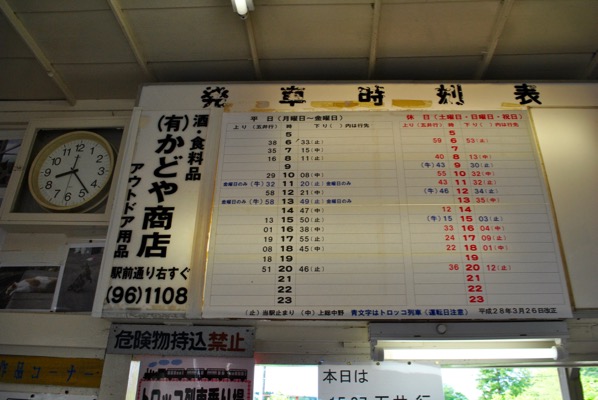 発車時刻表
酒・食料品
(有)かどや商店
アウトドア用品
駅前通り右すぐ
(96)1108
平日(月曜日〜金曜日)
上り(五井行) 時 下り( )内は行先
5
38 6 33(止)
35 7 15(中)
16 8 11(止)
9
29 10 08(中)
金曜日のみ (牛)32 11 20(止)金曜日のみ
58 12 21(中)
金曜日のみ (牛)58 13 49(止)金曜日のみ
14 47(中)
13 15 50(止)
01 16 38(中)
19 17 55(止)
08 18 45(中)
19
51 20 46(止)
21
22
23
休日(土曜日・日曜日・祝日)
上り(五井行) 時 下り( )内は行先
5
59 6 53(止)
7
40 8 13(中)
(牛)43 9 30(止)
55 10 32(中)
43 11 32(止)
(牛)46 12 34(止)
13 35(中)
12 14
(牛)15 15 03(止)
33 16 04(中)
24 17 09(止)
22 18 01(中)
19
36 20 12(止)
21
22
23
(止)当駅止まり (中)上総中野 青文字はトロッコ列車(運転日注意) 平成28年3月26日改正
危険物持込禁止
トロッコ列車乗り場
本日は